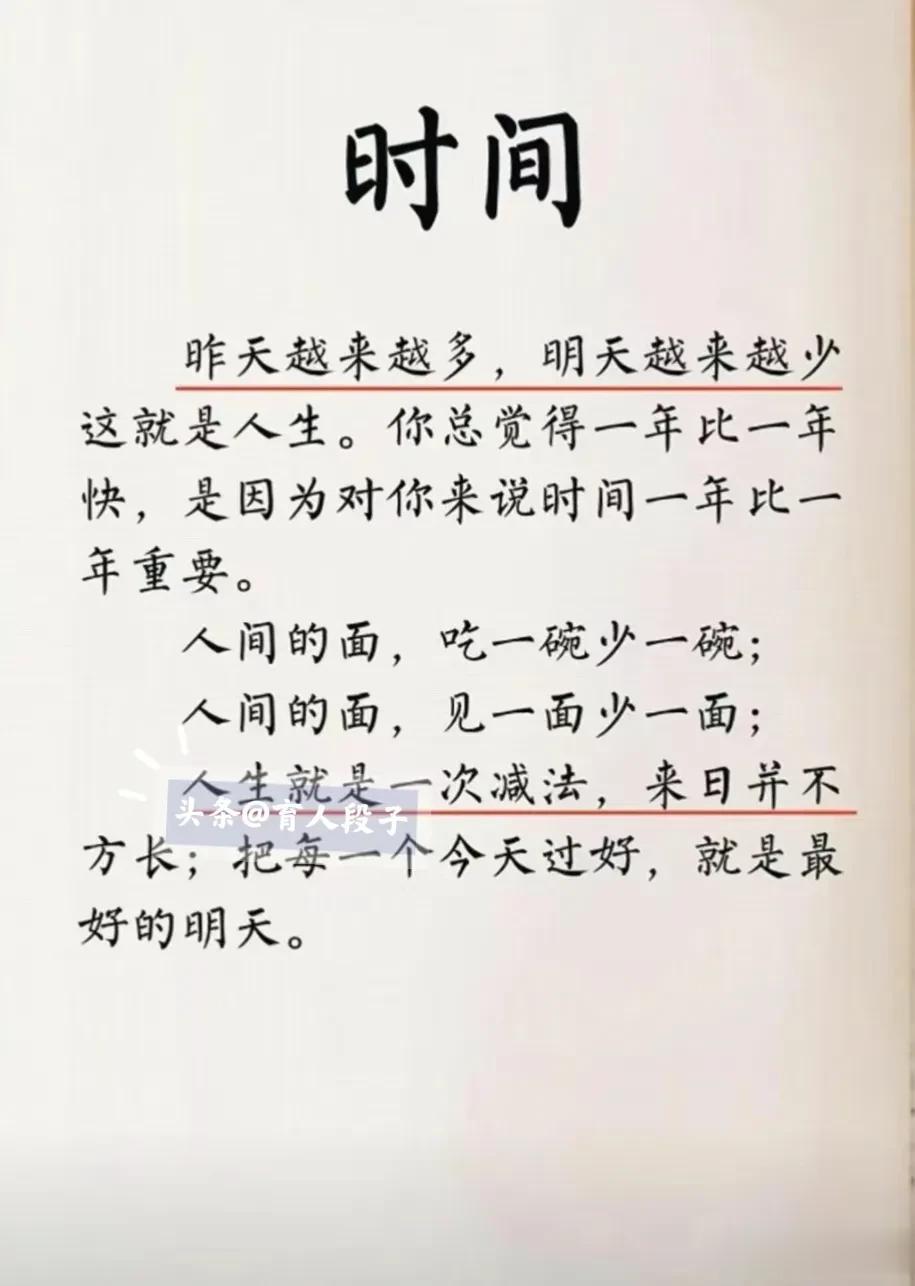 时间
昨天越来越多，明天越来越少
这就是人生。你总觉得一年比一年
快，是因为对你来说时间一年比一
年重要。
人间的面，吃一碗少一碗；
人间的面，见一面少一面；
人生就是一次减法，来日并不
头条@育人段子
方长；把每一个今天过好，就是最
好的明天。